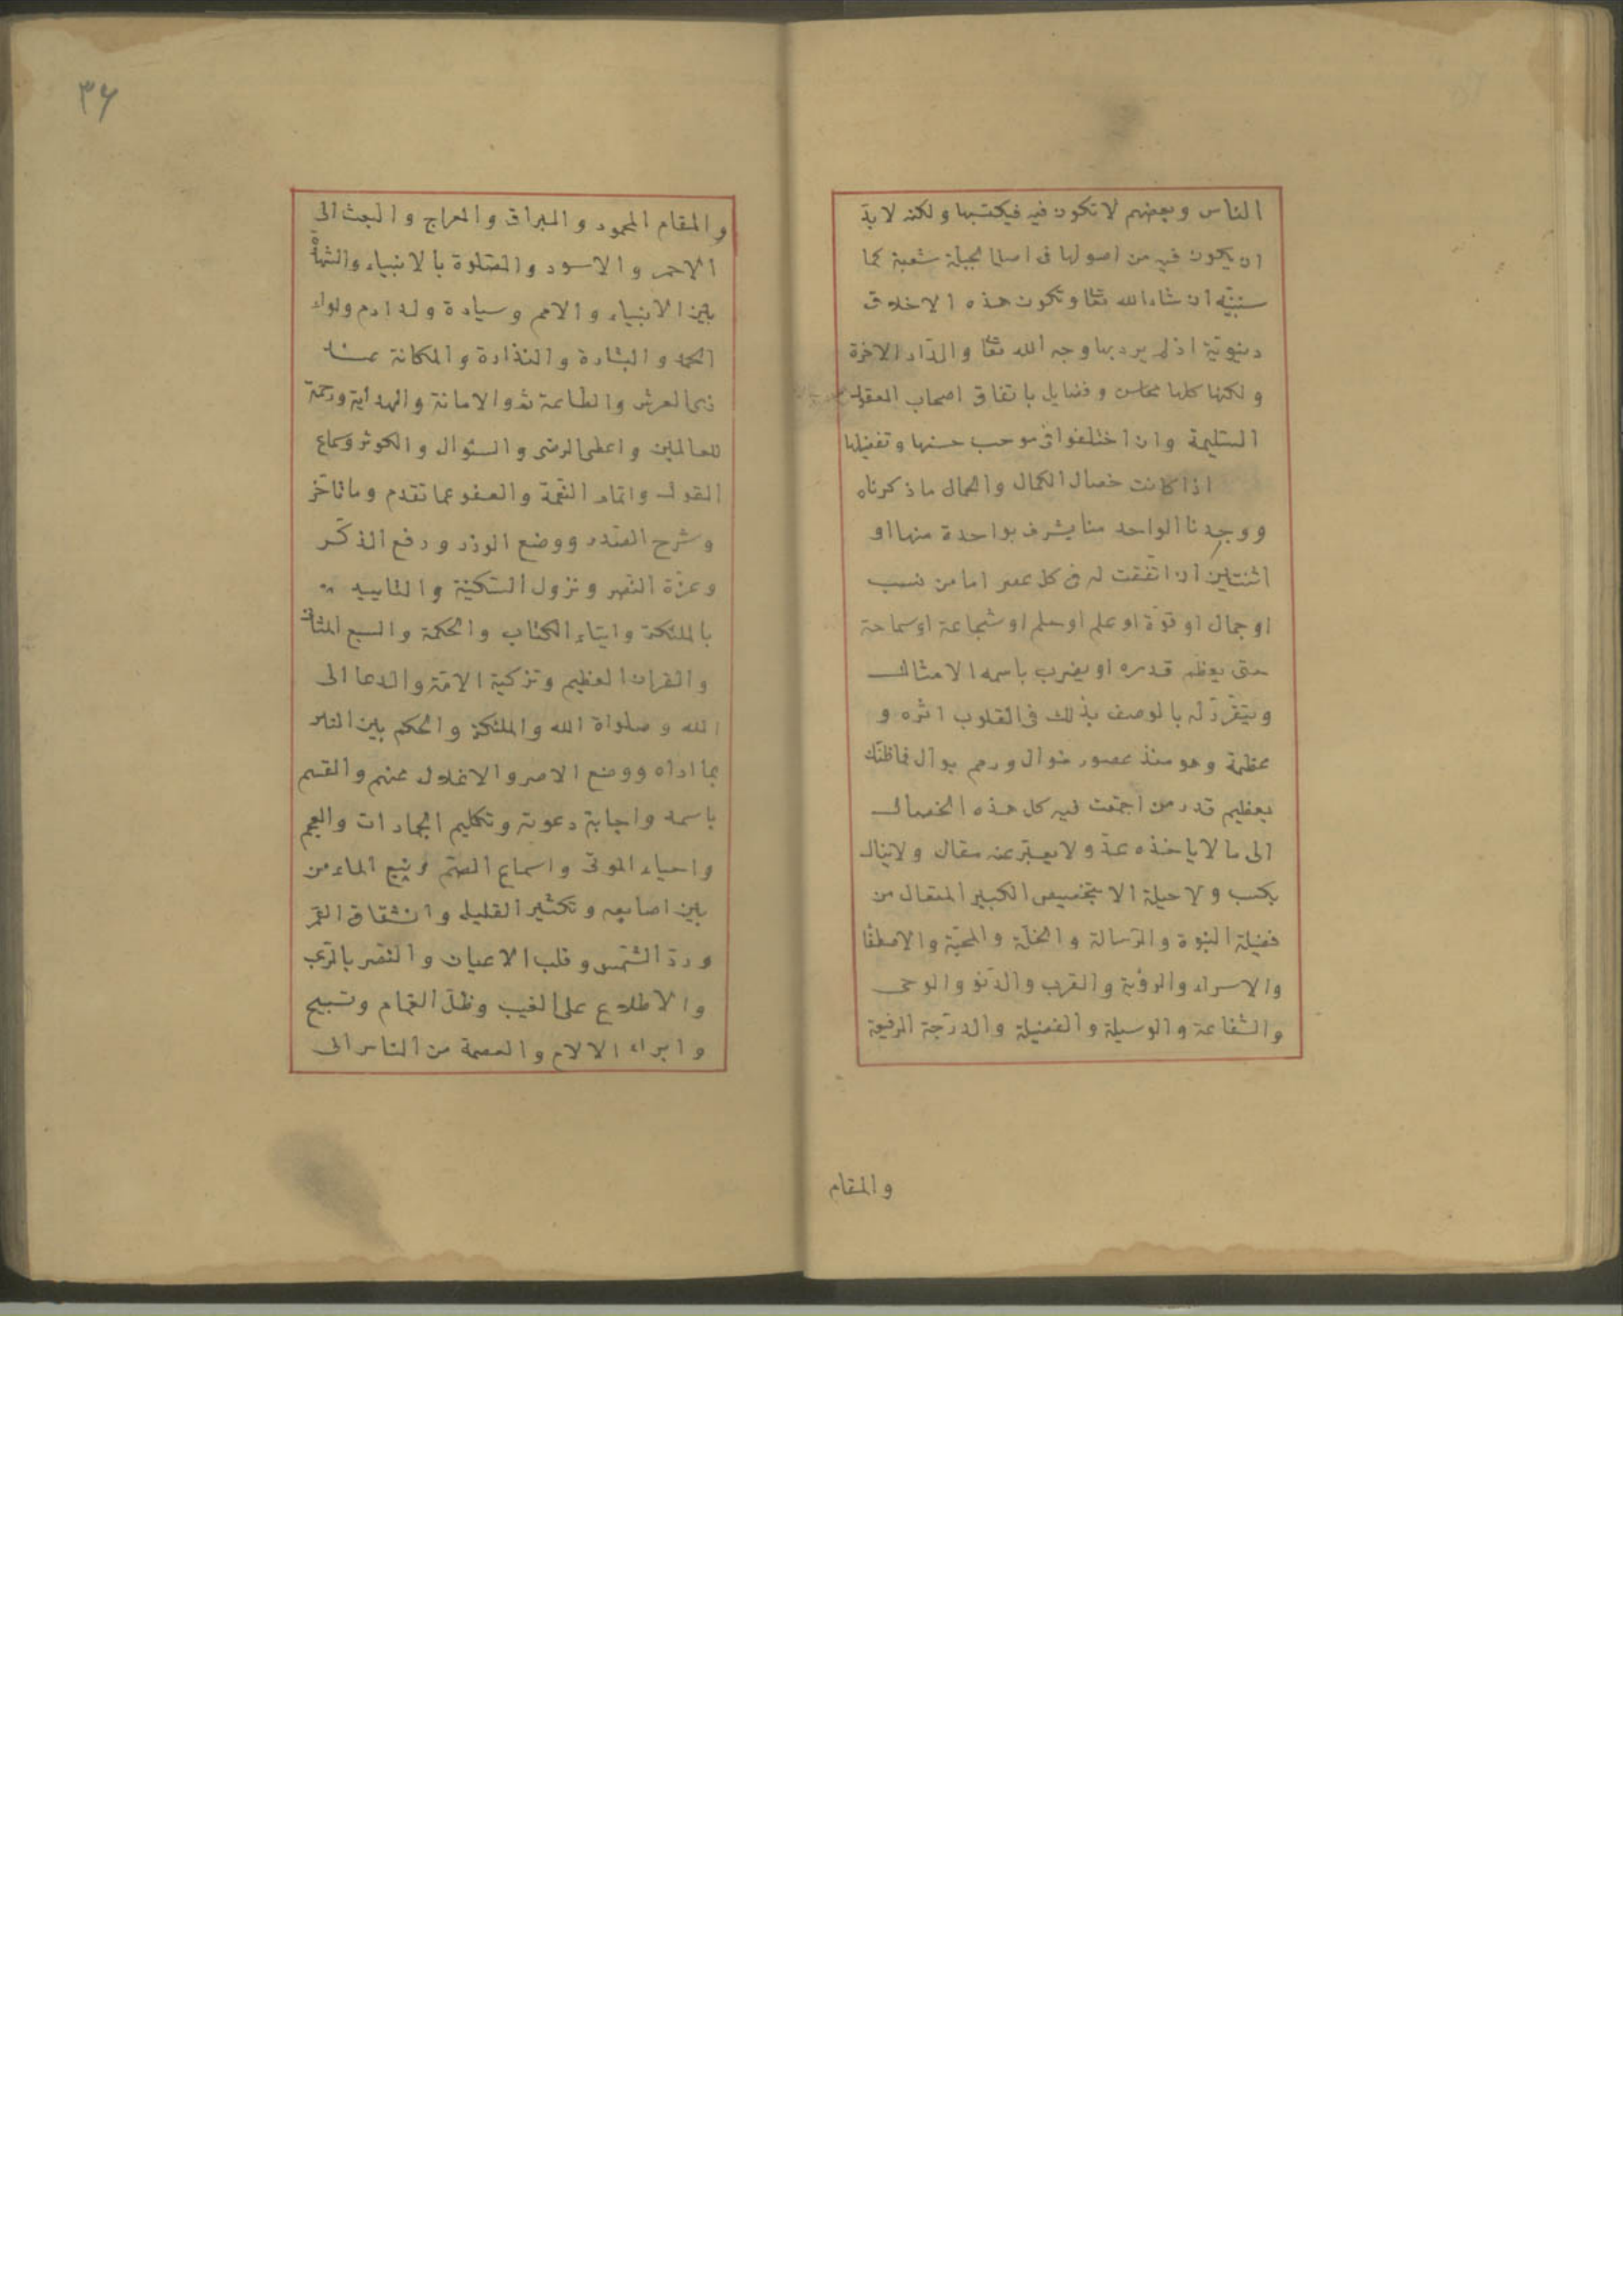 الناس وبعضهم لا تكون فيه فيكتسبها ولكنه لا بدّ
ان يكون فيه من اصولها فى اصل الجبلة شعبة كما
سنبيّنه ان شاء الله تعا وتكون هذه الاخلاق
دنيويّة اذ لم يرد بها وجه الله تعا والدّار الاخرة
ولكنها كلها محاسن وفضايل باتفاق اصحاب العقول
السّليمة وان اختلفوا فى موجب حسنها وتفضيلها
اذا كانت خصال الكمال والجمال ما ذكرناه
ووجدنا الواحد منا يشرف بواحدة منها او
اثنتين ان اتّفقت له فى كل عصر اما من نسب
او جمال او قوّة او علم او حلم او شجاعة او سماحة
حتى يعظم قدره او يضرب باسمه الامثال
ويتقرّر له بالوصف بذلك فى القلوب اثره و
عظمة وهو منذ عصور خوال ورمم بوال فما ظنّك
بعظيم قدر من اجتمعت فيه كل هذه الخصال
الى ما لا ياخذه عدّ ولا يعبّر عنه مقال ولا ينال
بكسب ولا حيلة الا بتخصيص الكبير المتعال من
فضيلة النبوة والرّسالة والخلّة والمحبّة والاصطفا
والاسراء والرؤية والقرب والدّنو والوحى
والشّفاعة والوسيلة والفضيلة والدرّجة الرفيعة
والمقام
٣٦
والمقام المحمود والبراق والمعراج والبعث الى
الاحمر والاسود والصّلوة بالانبياء والشهادة
بين الانبياء والامم وسيادة ولد ادم ولواء
الحمد والبشارة والنذارة والمكانة عند
ذى العرش والطاعة ثم والامانة والهداية ورحمة
للعالمين واعطى الرضى والسّوال والكوثر وسماع
القول واتمام النّعمة والعفو عما تقدم وما تاخّر
وشرح الصّدر ووضع الوزر ورفع الذكّر
وعزّة النّصر ونزول السّكينة والتاييد
بالملئكة وايتاء الكتاب والحكمة والسبع المثانى
والقران العظيم وتزكية الامّة والدعا الى
الله وصلواة الله والملئكة والحكم بين الناس
بما اراه ووضع الاصر والاغلال عنهم والقسم
باسمه واجابة دعوته وتكليم الجمادات والعجم
واحياء الموتى واسماع الصّم ونبع الماء من
بين اصابعه وتكثير القليل وانشقاق القمر
وردّ الشّمس وقلب الاعيان والنّصر بالرّعب
والاطلاع على الغيب وظلّ الغمام وتسبيح
وابراء الالام والعصمة من النّاس الى